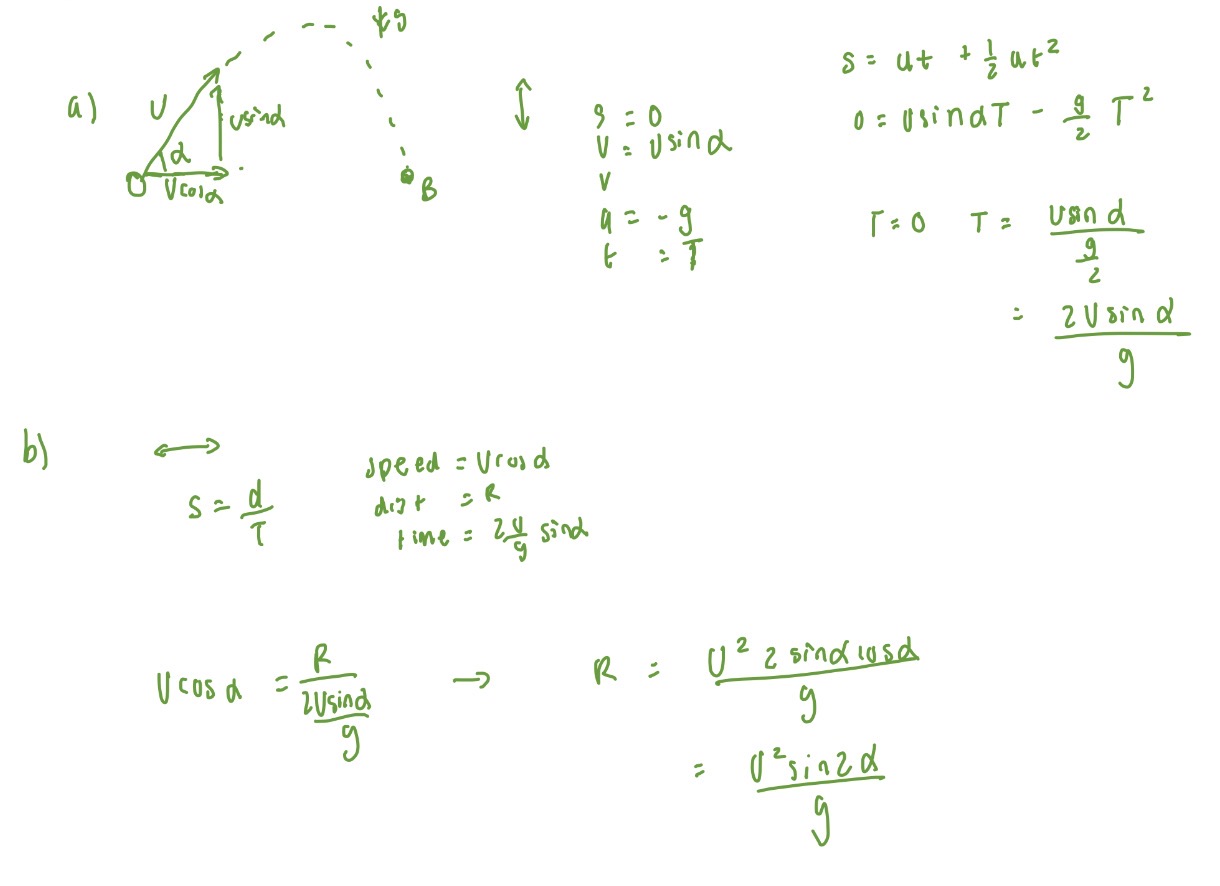 a)
U
α
Usinα
O
Ucosα
B
↓g
↕
s = 0
U = Usinα
v
a = -g
t = T
s = ut + 1/2 at²
0 = UsinαT - g/2 T²
T = 0   T = Usinα / (g/2)
= 2Usinα / g
b)
↔
s = d/T
speed = Ucosα
dist = R
time = 2U/g sinα
Ucosα = R / (2Usinα / g) → R = U² 2sinαcosα / g
= U²sin2α / g